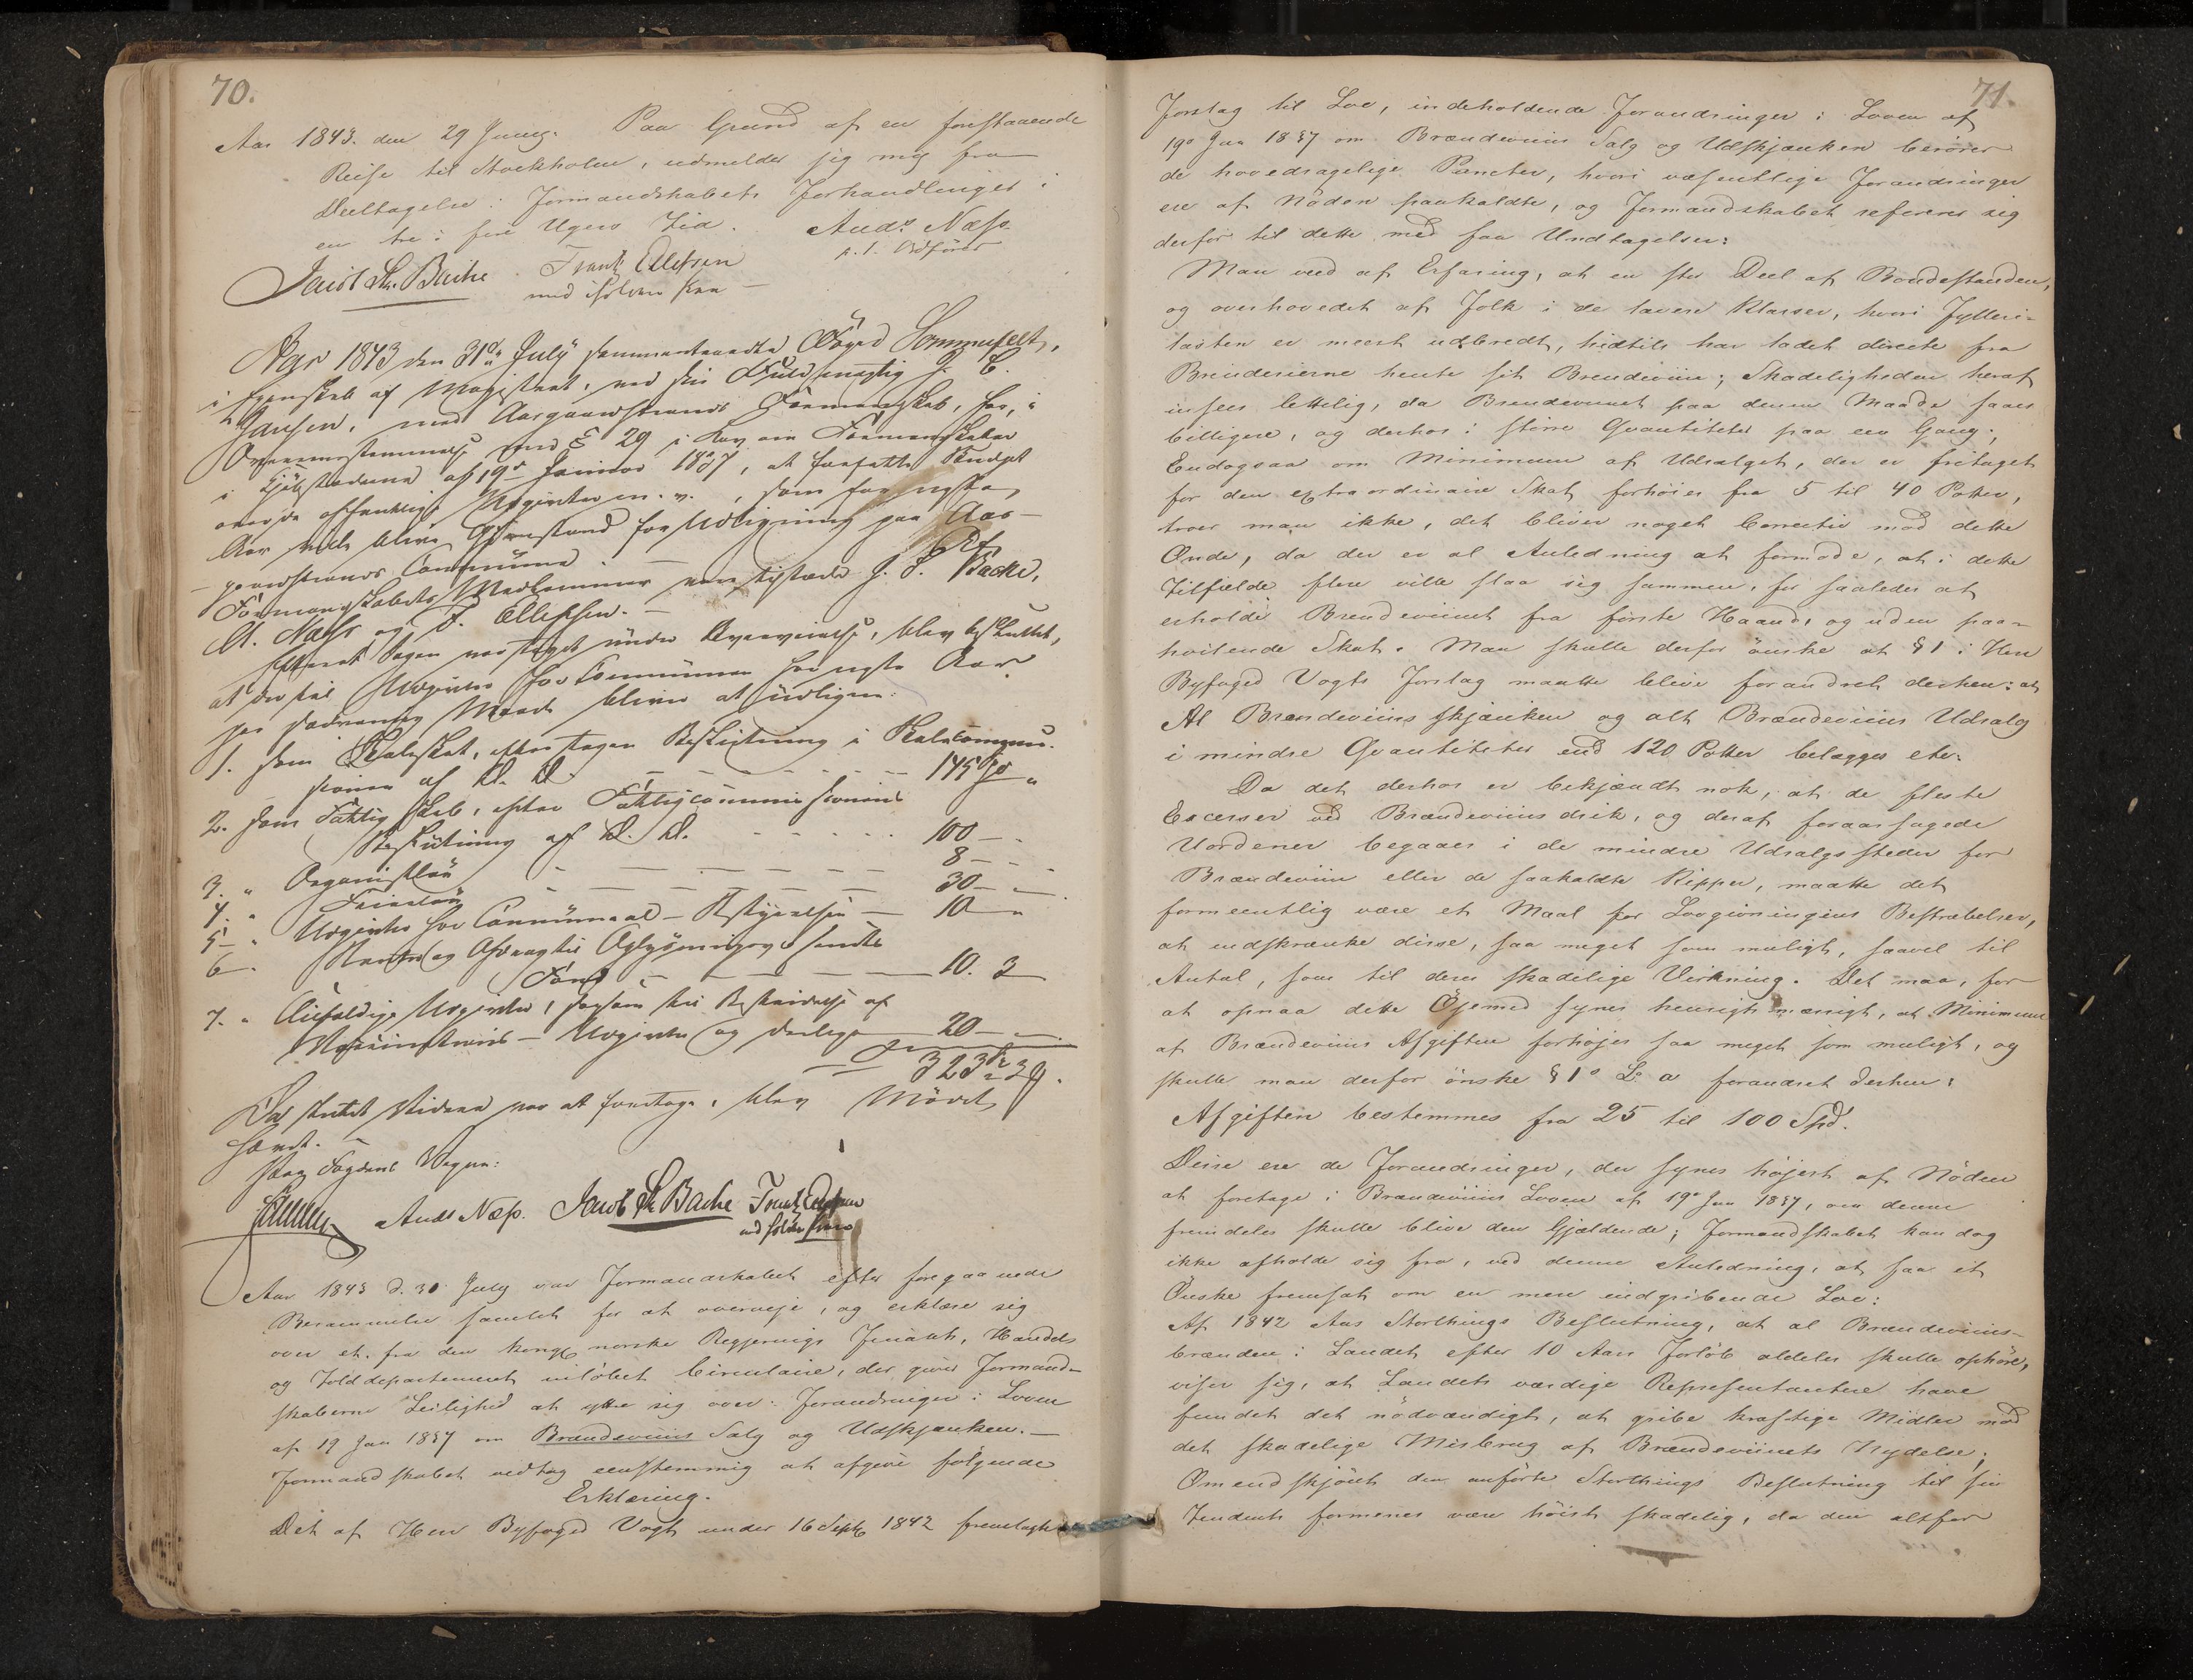 70.
Aar 1843. den 29 Juny. Paa Grund af en forestaaende
Reise til Stockholm, udmelder jeg mig fra
Deeltagelse i Formandskabets Forhandlinger i
en tre i fire Ugers Tid. Ands Næss.
p. t. Ordförer
Jacob St. Bache Frantz Ellefsen
med iholden Pen
Aar 1843 den 31te July sammentraadte Foged Sommerfelt,
i Egenskab af Magistrat, ved sin Fuldmægtig J. C.
Hansen, med Aasgaardstrands Formandskab, for, i
Overeensstemmelse med § 29 i Lov om Formandskaber
i Kjøbstæderne af 19de Januar 1837, at forfatte Budget
over de offentlige Udgivter m. v., som for næste
Aar ville blive Gjenstand for Udligning paa Aas-
gaardstrands Commune. —
Af Formandskabets Medlemmer vare tilstæde J. S. Backe,
A. Næss og F. Ellefsen. —
Efterat Sagen var taget under Overveielse, blev besluttet,
at der til Udgivter for Communen for næste Aar
paa sædvanlig Maade bliver at udligne:
1. som Skoleskat, efter tagen Beslutning i Skolecommis-
sionen af D. D. — — — 145 Spd "
2. som Fattigskat, efter Fattigcommissionens
Beslutning af D. D. — — — 100 — "
3. " Organistløn — — — 8 — "
4. " — — — 30 — "
5 — " Udgivter for Communal-Bestyrelsen — 10 — "
6 — " Renter og Afdrag til Oplysningsvæsenets
Fond — — — 10. 3
7. " Tilfældige Udgivter, saasom til Bestridelse af
Udgivter og deslige — 20 — "
323 Spd 3 ß.
Da intet videre var at foretage, blev Mødet
hævet. —
Paa Fogdens Vegne:
Hansen Ands Næss. Jacob St. Bache Frantz Ellefsen
med iholden Pen
Aar 1843 d. 30 July var Formandskabet efter foregaaende
Berammelse samlet for at overveje, og erklære sig
over et, fra den kongl norske Regjerings Finants, Handels
og Tolddepartement indløbet Circulaire, der giver Formand-
skaberne Leilighed at yttre sig over: Forandringer i Loven
af 19 Jan 1837 om Brændeviins Salg og Udskjænken. —
Formandskabet vedtog eenstemmig at afgive følgende
Erklæring.
Det af Herr Byfoged Vogt under 16 Septb 1842 fremlagte
71.
Forslag til Lov, indeholdende Forandringer i Loven af
19de Jan 1837 om Brændeviins Salg og Udskjænken berører
de hovedsagelige Puncter, hvori væsentlige Forandringer
ere af Nöden paakaldte, og Formandskabet refererer sig
derfor til dette med faa Undtagelser:
Man veed af Erfaring, at en stor Deel af Bondestanden,
og overhovedet af Folk i de lavere Klasser, hvori Fylleri-
lasten er meest udbredt, hidtil har ladet directe fra
Brænderierne hente sit Brændeviin; Skadeligheden heraf
indsees lettelig, da Brændevinet paa denne Maade faaes
billigere, og derhos i større Qvantiteter paa een Gang.
Endogsaa om Minimum af Udsalget, der er fritaget
for den extraordinaire Skat, forhöies fra 5 til 40 Potter,
troer man ikke, det bliver noget Correctiv mod dette
Onde, da der er al Anledning at formode, at i dette
Tilfælde flere ville slaa sig sammen, for saaledes at
erholde Brændeviinet fra første Haand, og uden paa-
hvilende Skat. Man skulle derfor ønske at § 1 i Herr
Byfoged Vogts Forslag maatte blive forandret derhen: at
Al Brændeviins skjænken og alt Brændeviins Udsalg
i mindre Qvantiteter end 120 Potter belægges etc.
Da det derhos er bekjændt nok, at de fleste
Excesser ved Brændeviinsdrik, og deraf foraarsagede
Uordener begaaes i de mindre Udsalgssteder for
Brændeviin eller de saakaldte Kipper, maatte det
formeentlig være et Maal for Lovgivningens Bestræbelser,
at indskrænke disse, saa meget som muligt, saavel til
Antal, som til deres skadelige Virkning. Det maa, for
at opnaa dette Öjemed synes hensigtsmæssigt, at Minimum
af Brændeviins Afgiften forhöjes saa meget som muligt, og
skulle man derfor ønske § 1 L. a forandret derhen:
Afgiften bestemmes fra 25 til 100 Spd.
Disse ere de Forandringer, der synes højest af Nöden
at foretage i Brændeviins Loven af 19de Jan 1837, om denne
fremdeles skulle blive den Gjældende; Formandskabet kan dog
ikke afholde sig fra, ved denne Anledning, at faa et
Önske fremsat om en mere indgribende Lov:
Af 1842 Aars Storthings Beslutning, at al Brændeviins-
brænden i Landet efter 10 Aars Forløb aldeles skulle ophöre,
viser sig, at Landets værdige Repræsentantere have
fundet det nödvændigt, at gribe kraftige Midler mod
det skadelige Misbrug af Brændeviinets Nydelse;
Omendskjönt den anförte Storthings Beslutning til sin
Tendents formenes være höist skadelig, da den altfor